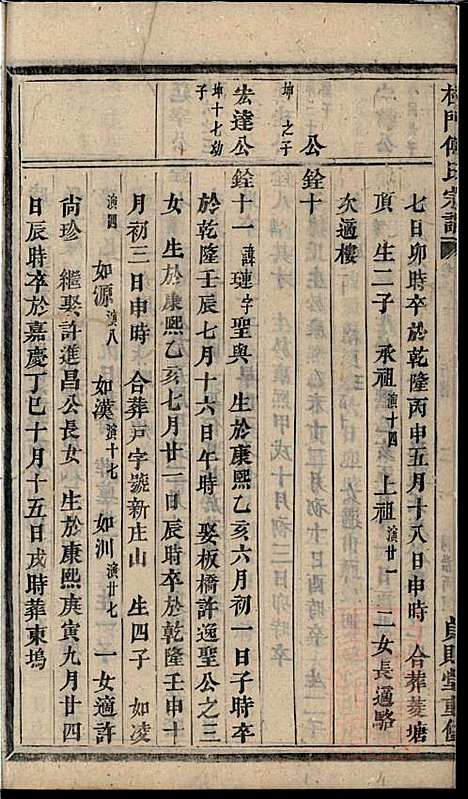 七日卯時卒於乾隆丙申五月十八日申時 合葬菱塘
頂 生二子 承祖演十四 上祖演廿一 二女長適駱
次適樓
坤 之子
公
銓十
宏達公
坤十七幼
子
銓十一 諱璉字聖與 生於康熙乙亥六月初一日子時卒
於乾隆壬辰七月十六日午時 娶板橋許逸聖公之三
女 生於康熙乙亥七月廿二日辰時卒於乾隆壬申十
月初三日申時 合葬戸字號新庄山 生四子 如凌
演四 如源演八 如漢演十七 如洲演廿七 一女適許
尙珍 繼娶許進昌公長女 生於康熙庚寅九月廿四
日辰時卒於嘉慶丁巳十月十五日戌時葬東塢